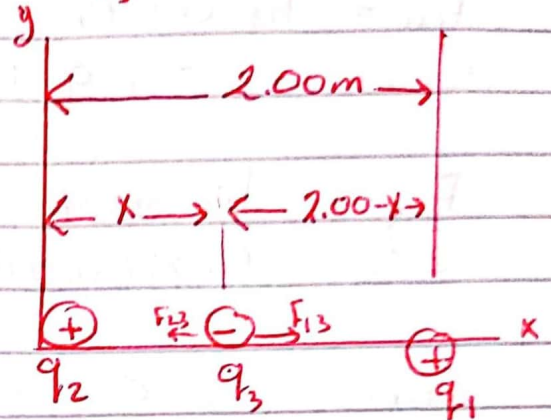 y
2.00m
x 2.00-x
F23 F13
+ - + x
q2 q3 q1